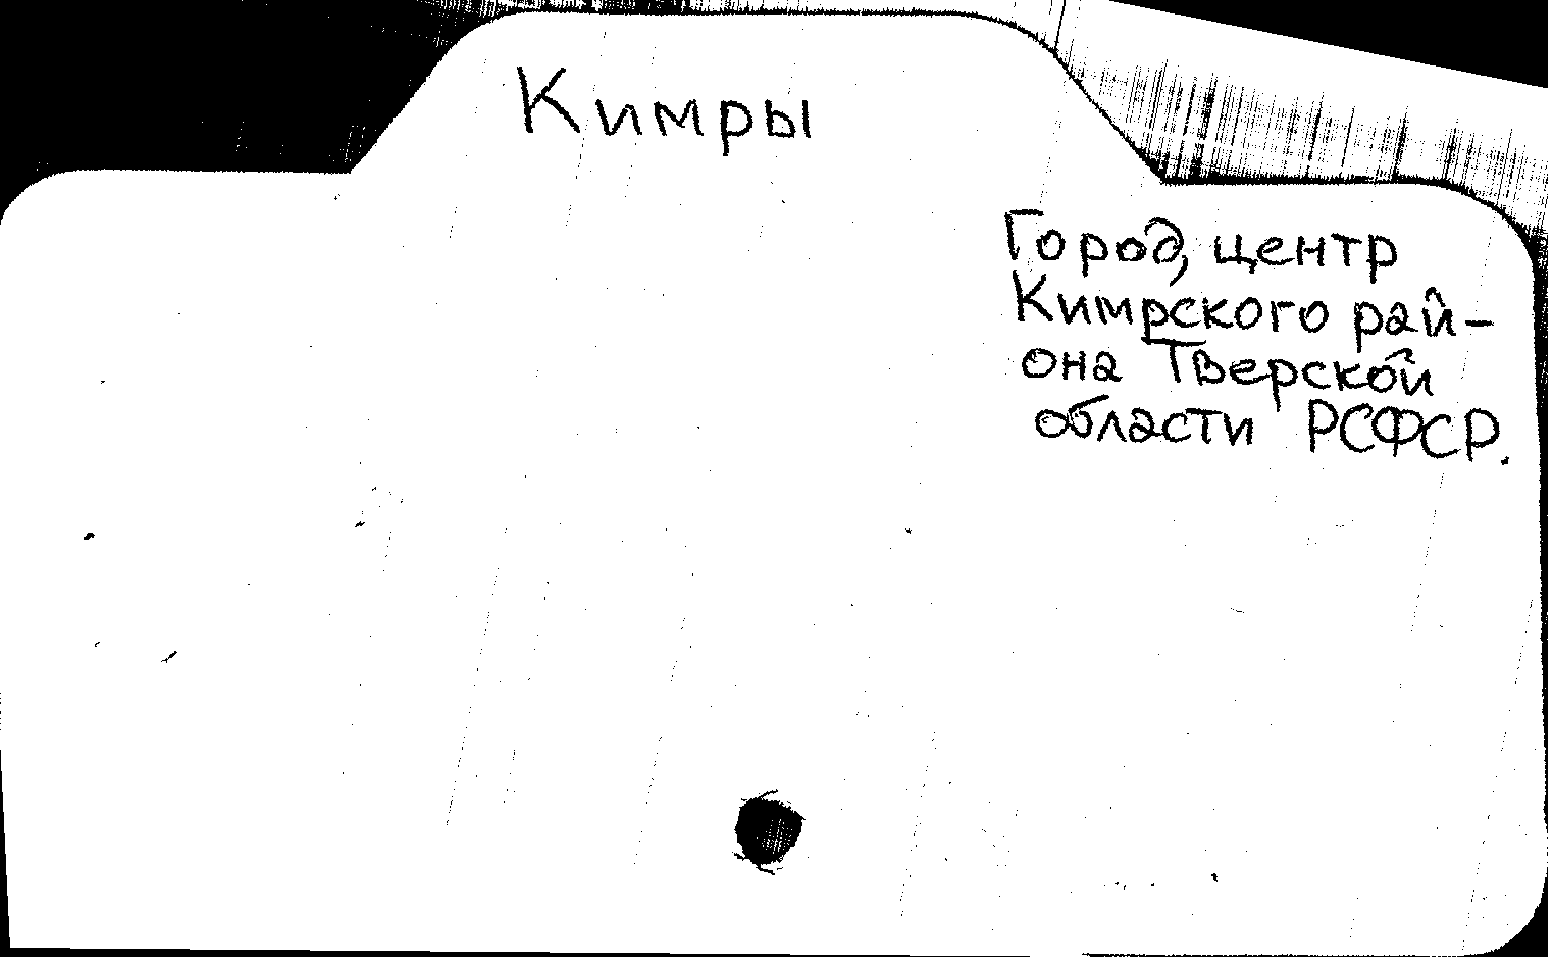 Кимры
Город, центр
Кимрского рай-
она Тверской
области РСФСР.